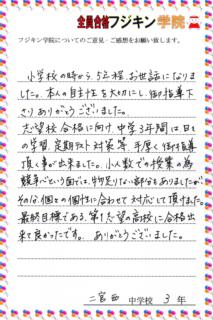 全員合格フジキン学院
フジキン学院についてのご意見・ご感想をお願い致します。
小学校の時から、5年程お世話になりま
した。本人の自主性を大切にし、御指導下
さりありがとうございました。
志望校合格に向け、中学3年間は、日々
の学習、定期テスト対策等、手厚く御指導
頂く事が出来ました。小人数での授業の為
競争心という面では、物足りない部分もありましたが
その分、個々の個性に合わせて対応して頂けました。
最終目標である、第1志望の高校に合格出
来て良かったです。ありがとうございました。
二宮西 中学校 3 年